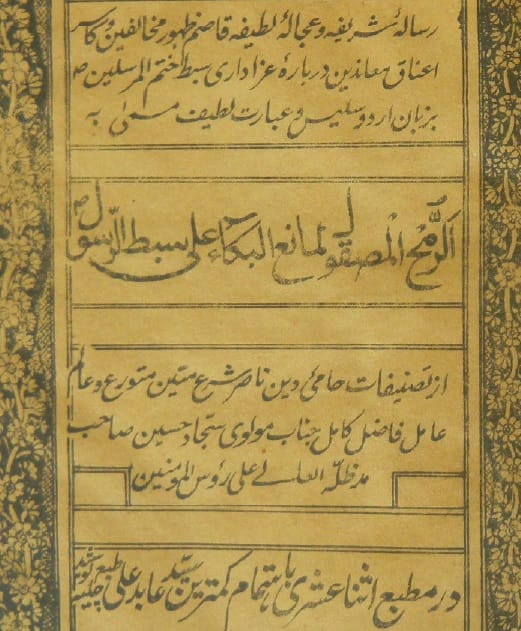 رسالۂ شریفہ و عجالۂ لطیفہ قاصم ظہور مخالفین و کاسر
اعناق معاندین دربارۂ عزاداری سبط ختم المرسلین ص
بزبان اردو سلیس و عبارت لطیف مسمیٰ بہ
اَلرُّمْحُ الْمصقول لمانع البکاء علی سبط الرّسول ص
از تصنیفات حامیٔ دین ناصر شرع متین متورع و عالم
عامل فاضل کامل جناب مولوی سجاد حسین صاحب
مدظلّہ العالے علی رؤس المؤمنین
در مطبع اثنا عشری باہتمام کمترین سیّد عابد علی طبع